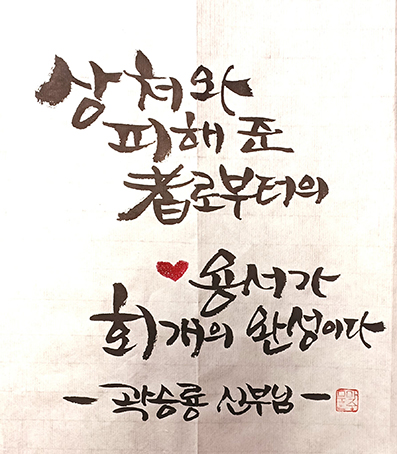 상처와
피해 준
者로부터의
용서가
회개의 완성이다
-곽승룡 신부님-